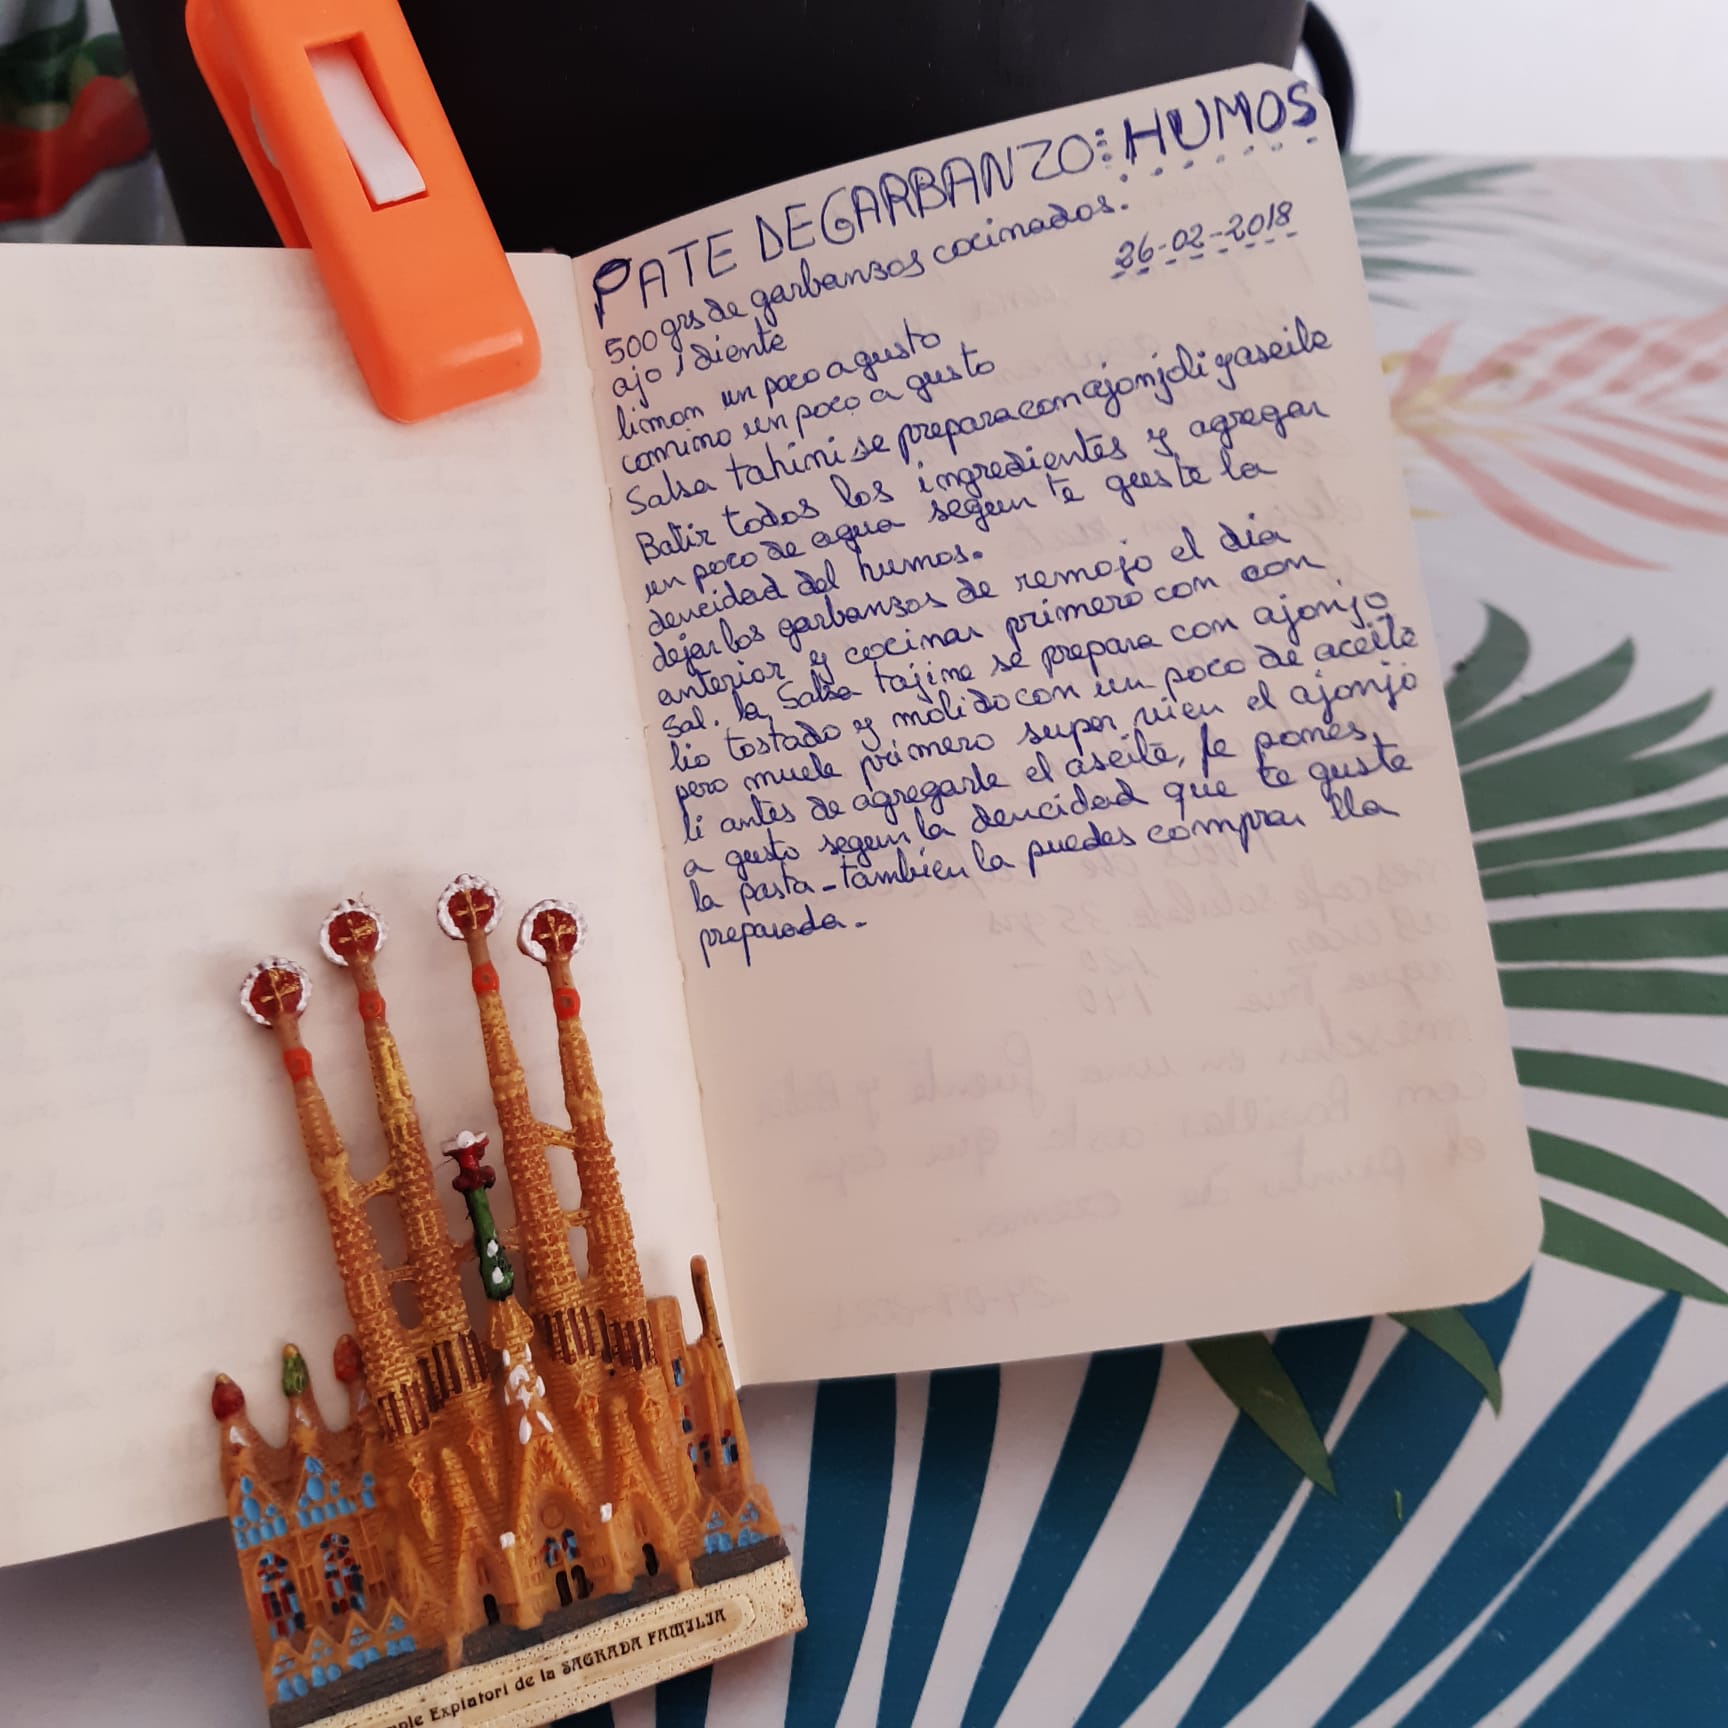 PATE DE GARBANZO: HUMOS
26-02-2018
500 grs de garbansos cocinados.
ajo 1 diente
limon un poco a gusto
comino un poco a gusto
Salsa tahini se prepara con ajonjoli y aseite
Batir todos los ingredientes y agregar
un poco de agua segun te guste la
dencidad del humos.
dejar los garbansos de remojo el dia
anterior y cocinar primero con con
sal. la salsa tajine se prepara con ajonjo
lio tostado y molido con un poco de aceite
pero muele primero super vien el ajonjo
li antes de agregarle el aseite, le pones
a gusto segun la dencidad que te guste
la pasta - tambien la puedes comprar lla
preparada -
Temple Expiatori de la SAGRADA FAMILIA